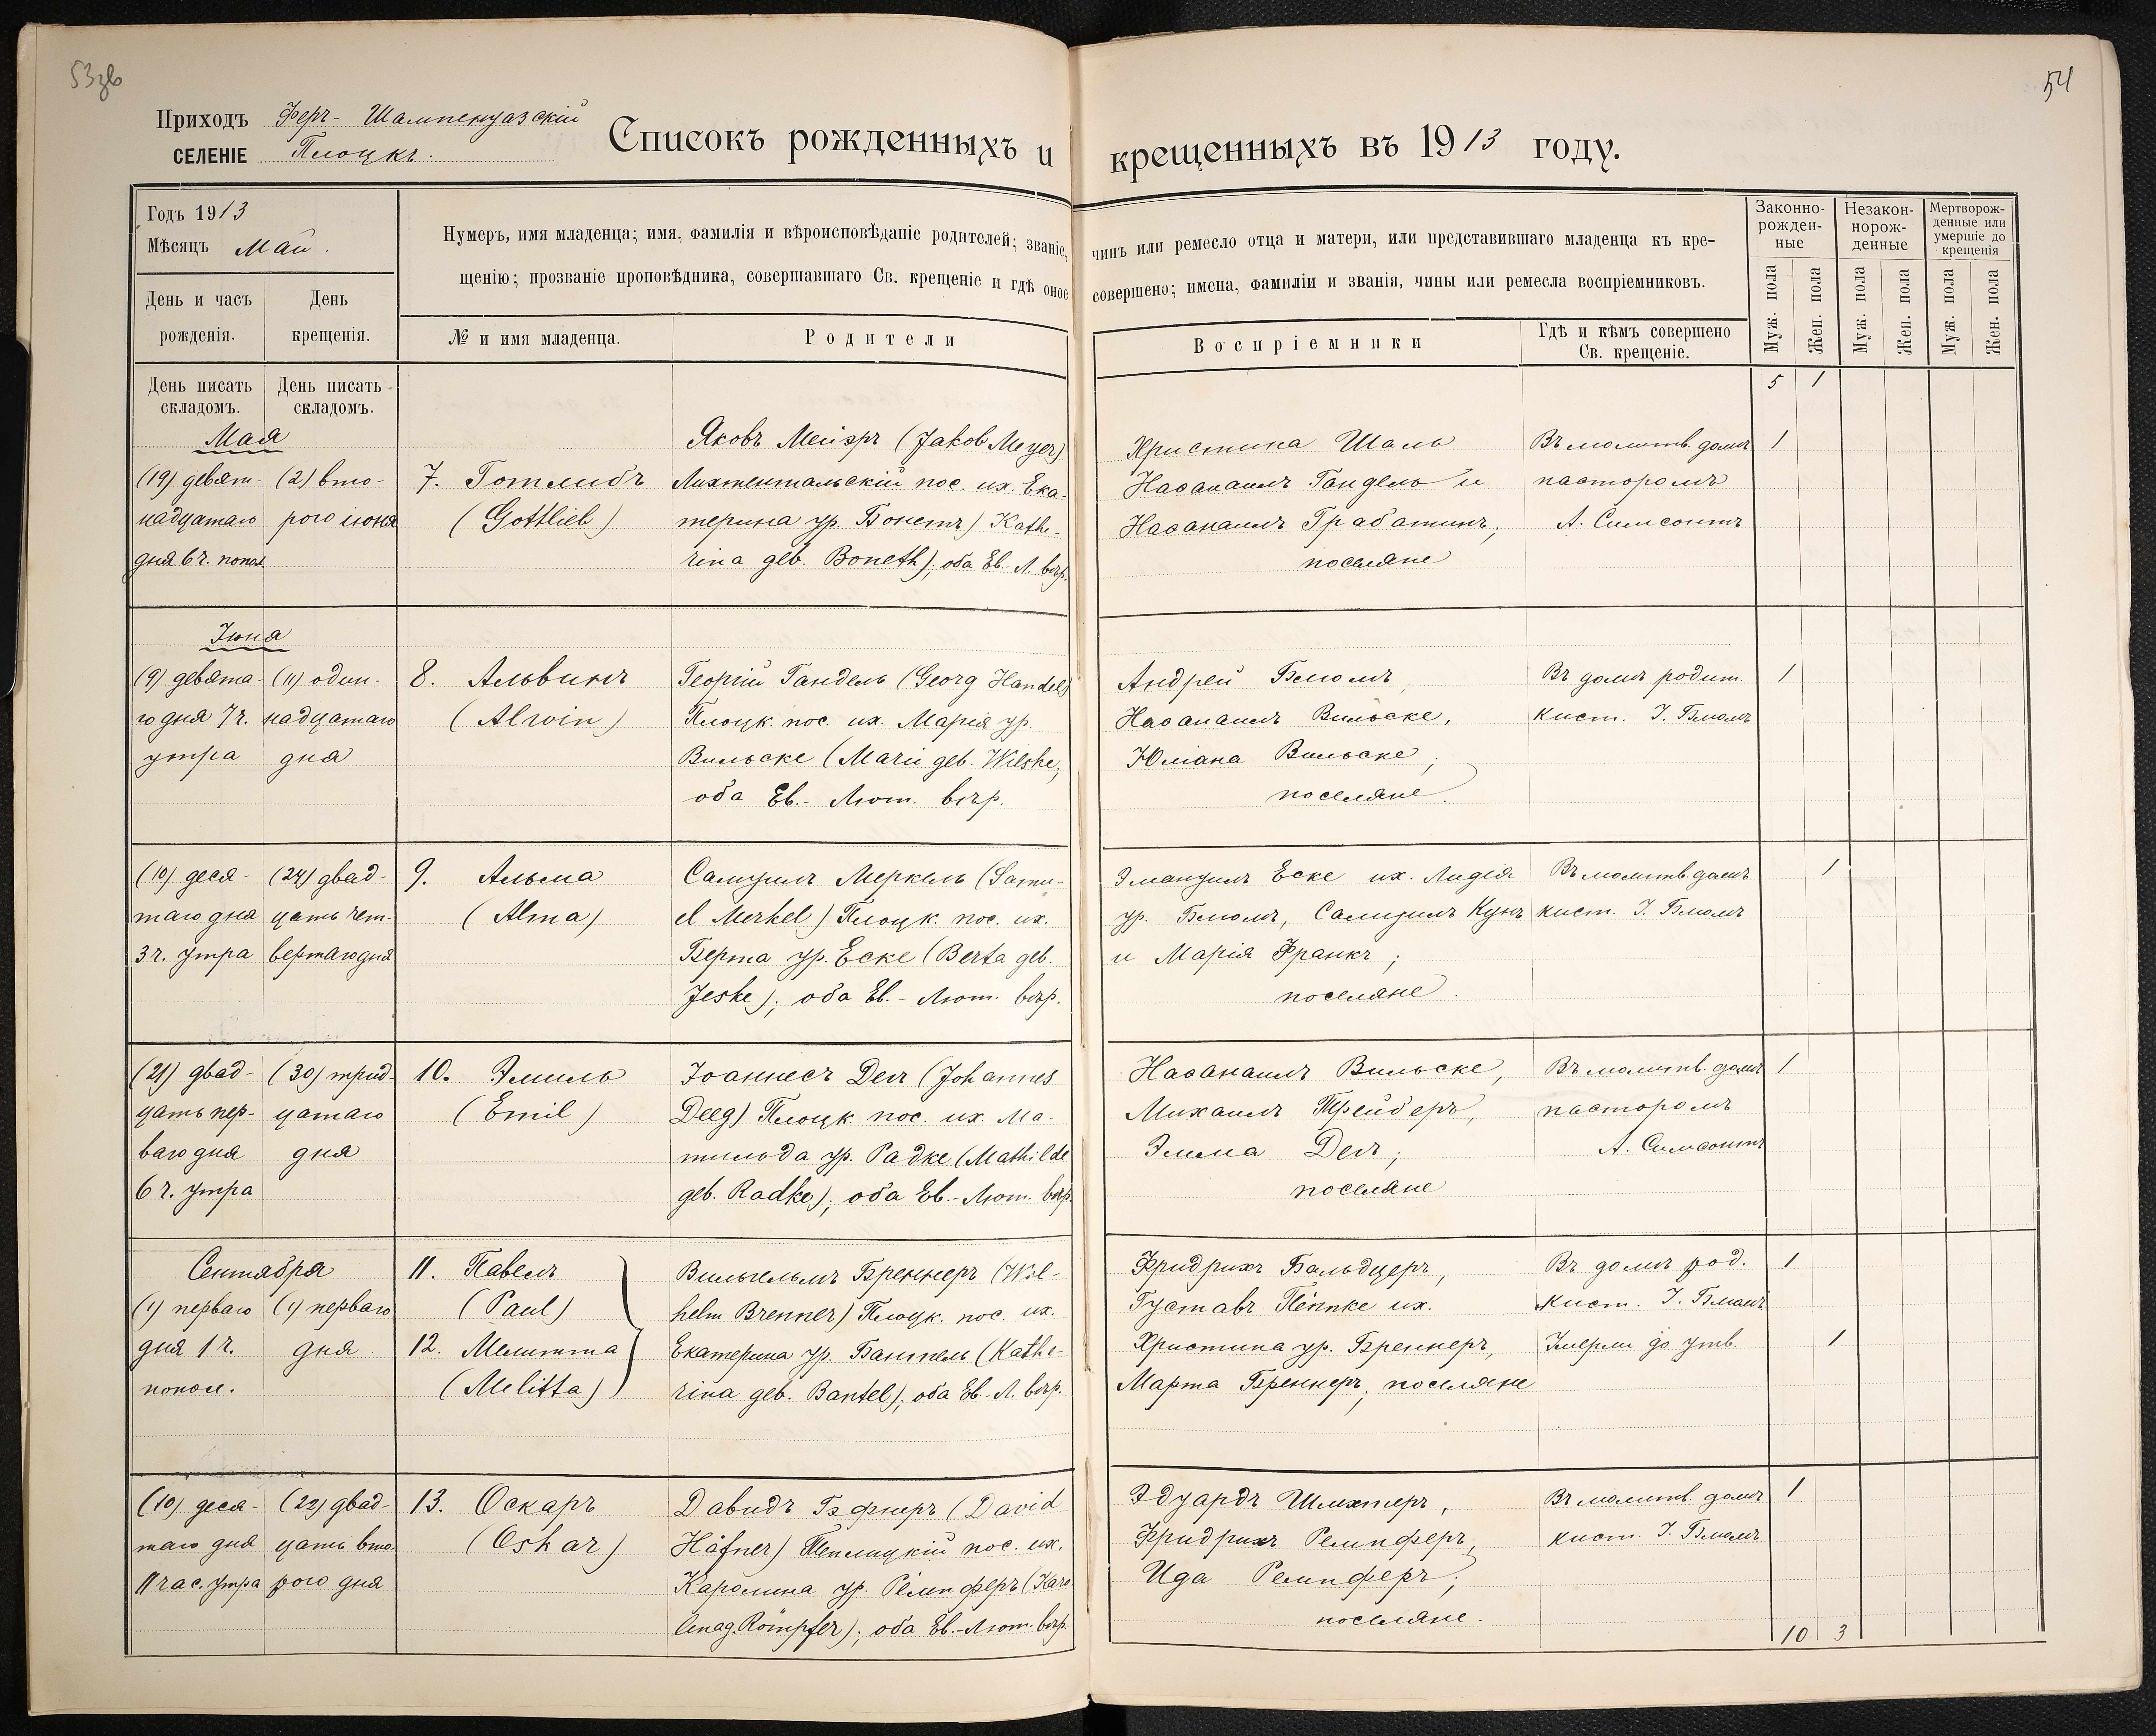 53об
54
Приходъ Феръ-Шампенуазскій
СЕЛЕНІЕ Плоцкъ.
Списокъ рожденныхъ и крещенныхъ въ 1913 году.
Годъ 1913
Мѣсяцъ Май.
День и часъ рожденія.
День крещенія.
Нумеръ, имя младенца; имя, фамилія и вѣроисповѣданіе родителей; званіе, чинъ или ремесло отца и матери, или представившаго младенца къ кре-
щенію; прозваніе проповѣдника, совершавшаго Св. крещеніе и гдѣ оное совершено; имена, фамиліи и званія, чины или ремесла воспріемниковъ.
№ и имя младенца.
Родители
Воспріемники
Гдѣ и кѣмъ совершено
Св. крещеніе.
Законно-
рожден-
ные
Незакон-
норож-
денные
Мертворож-
денные или
умершіе до
крещенія
Муж. пола
Жен. пола
Муж. пола
Жен. пола
Муж. пола
Жен. пола
День писать
складомъ.
День писать
складомъ.
5 1
Мая
(19) девят-
надцатаго
дня 6 ч. попол.
(2) вто-
рого іюня
7. Готлибъ
(Gottlieb)
Яковъ Мейэръ (Jakob Meyer)
Лихтентальскій пос. их. Ека-
терина ур. Бонетъ) Kathe-
rina geb. Boneth); оба Ев-Л. вѣр.
Христина Шаль
Наѳанаилъ Гандель и
Наѳанаилъ Грабатинъ;
поселяне
Въ молитв. домѣ
пасторомъ
А. Симсонъ
1
Іюня
(9) девята-
го дня 7 ч.
утра
(11) один-
надцатаго
дня
8. Альвинъ
(Alwin)
Георгій Гандель (Georg Handel)
Плоцк. пос. их. Марія ур.
Вильске (Marii geb. Wilske;
оба Ев.-Лют. вѣр.
Андрей Блюмъ,
Наѳанаилъ Вильске,
Юліана Вильске;
поселяне.
Въ домѣ родит.
кист. І. Блюмъ
1
(10) деся-
таго дня
3 ч. утра
(24) двад-
цать чет-
вертаго дня
9. Альма
(Alma)
Самуилъ Меркель (Samu-
el Merkel) Плоцк. пос. их.
Берта ур. Еске (Berta geb.
Jeske); оба Ев.-Лют. вѣр.
Эмануилъ Еске их. Лидія
ур. Блюмъ, Самуилъ Кунъ
и Марія Франкъ;
поселяне.
Въ молитв. домѣ
кист. І. Блюмъ
1
(21) двад-
цать пер-
ваго дня
6 ч. утра
(30) трид-
цатаго
дня
10. Эмиль
(Emil)
Іоаннесъ Дег (Johannes
Deeg) Плоцк. пос. их. Ма-
тильда ур. Радке (Mathilde
geb. Radke); оба Ев.-Лют. вѣр.
Наѳанаилъ Вильске,
Михаилъ Трейберъ,
Эмма Дег;
поселяне
Въ молитв. домѣ
пасторомъ
А. Симсонъ
1
Сентября
(1) перваго
дня 1 ч.
попол.
(1) перваго
дня
11. Павелъ
(Paul)
12. Мелитта
(Melitta)
Вильгельмъ Бреннеръ (Wil-
helm Brenner) Плоцк. пос. их.
Екатерина ур. Бантель (Kathe-
rina geb. Bantel); оба Ев.-Л. вѣр.
Фридрихъ Бальдцеръ,
Густавъ Пёппке их.
Христина ур. Бреннеръ,
Марта Бреннеръ; поселяне
Въ домѣ род.
кист. І. Блюмъ
Умерли до утв.
1
1
(10) деся-
таго дня
11 час. утра
(22) двад-
цать вто-
рого дня
13. Оскаръ
(Oskar)
Давидъ Гэфнеръ (David
Häfner) Теплицкій пос. их.
Каролина ур. Рёмпферъ (Karo-
lina g. Römpfer); оба Ев.-Лют. вѣр.
Эдуардъ Шлихтеръ,
Фридрихъ Ремпферъ,
Ида Ремпферъ;
поселяне.
Въ молитв. домѣ
кист. І. Блюмъ
1
10 3